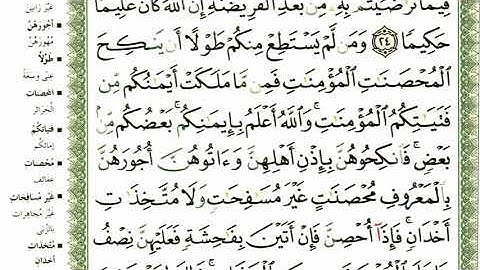 فِيمَا تَرَٰضَيْتُم بِهِۦ مِنۢ بَعْدِ ٱلْفَرِيضَةِ إِنَّ ٱللَّهَ كَانَ عَلِيمًا
حَكِيمًا ٢٤ وَمَن لَّمْ يَسْتَطِعْ مِنكُمْ طَوْلًا أَن يَنكِحَ
ٱلْمُحْصَنَٰتِ ٱلْمُؤْمِنَٰتِ فَمِن مَّا مَلَكَتْ أَيْمَٰنُكُم مِّن
فَتَيَٰتِكُمُ ٱلْمُؤْمِنَٰتِ ۚ وَٱللَّهُ أَعْلَمُ بِإِيمَٰنِكُم ۚ بَعْضُكُم مِّنۢ
بَعْضٍ ۚ فَٱنكِحُوهُنَّ بِإِذْنِ أَهْلِهِنَّ وَءَاتُوهُنَّ أُجُورَهُنَّ
بِٱلْمَعْرُوفِ مُحْصَنَٰتٍ غَيْرَ مُسَٰفِحَٰتٍ وَلَا مُتَّخِذَٰتِ
أَخْدَانٍ ۚ فَإِذَآ أُحْصِنَّ فَإِنْ أَتَيْنَ بِفَٰحِشَةٍ فَعَلَيْهِنَّ نِصْفُ
غَيْرَ زَانِينَ
أُجُورَهُنَّ
مُهُورَهُنَّ
طَوْلًا
غِنًى وَسَعَةً
المحصنات
الحَرَائِرَ
فَتَيَاتِكُمُ
إِمَائِكُم
مُحْصَنَات
عَفَائِفَ
غَيْرَ مُسَافِحَات
غَيْرَ مُجَاهِرَات
بِالزِّنَى
مُتَّخِذَات
أَخْدَان